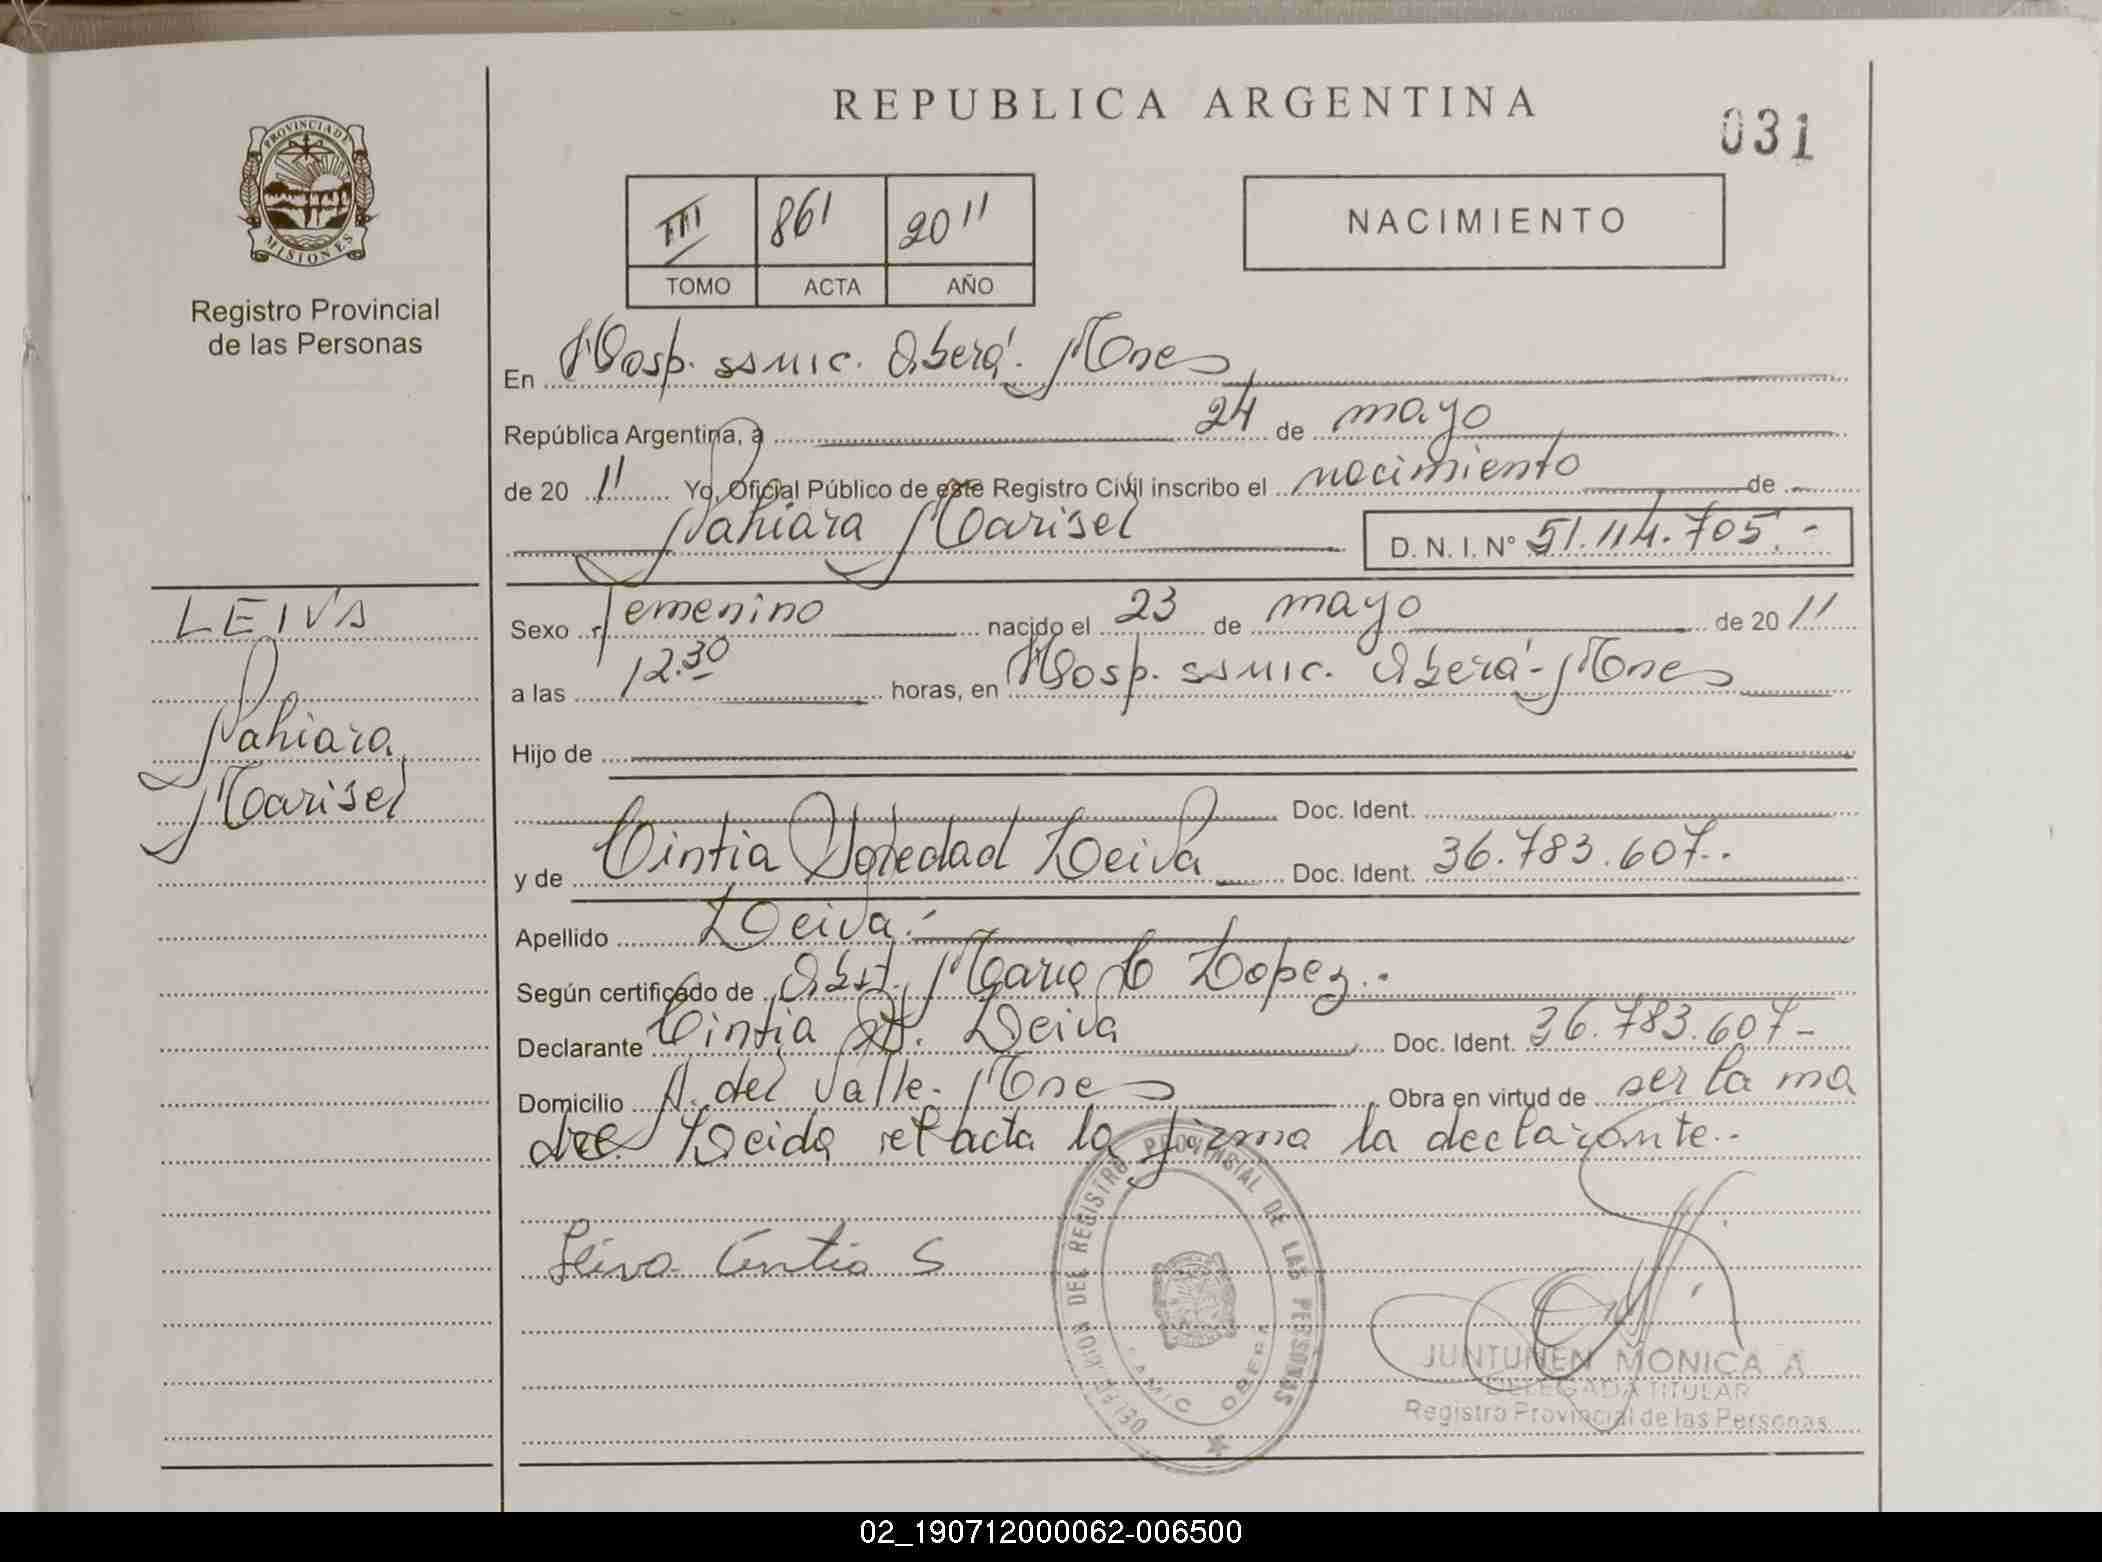 REPUBLICA ARGENTINA
031
PROVINCIA DE
MISIONES
Registro Provincial
de las Personas
III 861 2011
TOMO ACTA AÑO
NACIMIENTO
En Hosp. ssmic. Oberá. Mnes
República Argentina, a 24 de mayo
de 20 11 Yo, Oficial Público de este Registro Civil inscribo el nacimiento de
Nahiara Marisel D. N. I. N° 51.114.705.-
LEIVA
Nahiara
Marisel
Sexo Femenino nacido el 23 de mayo de 20 11
a las 12.30 horas, en Hosp. ssmic. Oberá - Mnes
Hijo de
Doc. Ident.
y de Cintia Soledad Leiva Doc. Ident. 36.783.607.-
Apellido Leiva.-
Según certificado de Obst. Maria C Lopez.-
Declarante Cintia S. Leiva Doc. Ident. 36.783.607-
Domicilio A. del Valle. Mnes Obra en virtud de ser la ma
dre. Leida el acta la firma la declarante.-
Leiva Cintia S
DELEGACION DEL REGISTRO PROVINCIAL DE LAS PERSONAS
SAMIC OBERA
JUNTUNEN MONICA A
DELEGADA TITULAR
Registro Provincial de las Personas
02_190712000062-006500